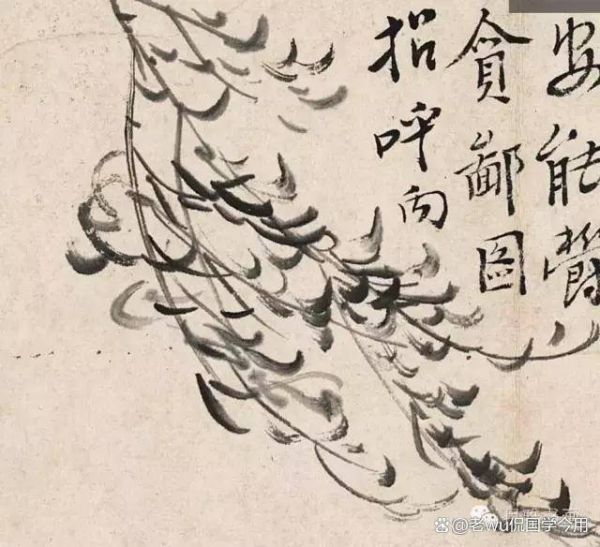 安能
貪鄙图
招呼向
老wu侃国学今用